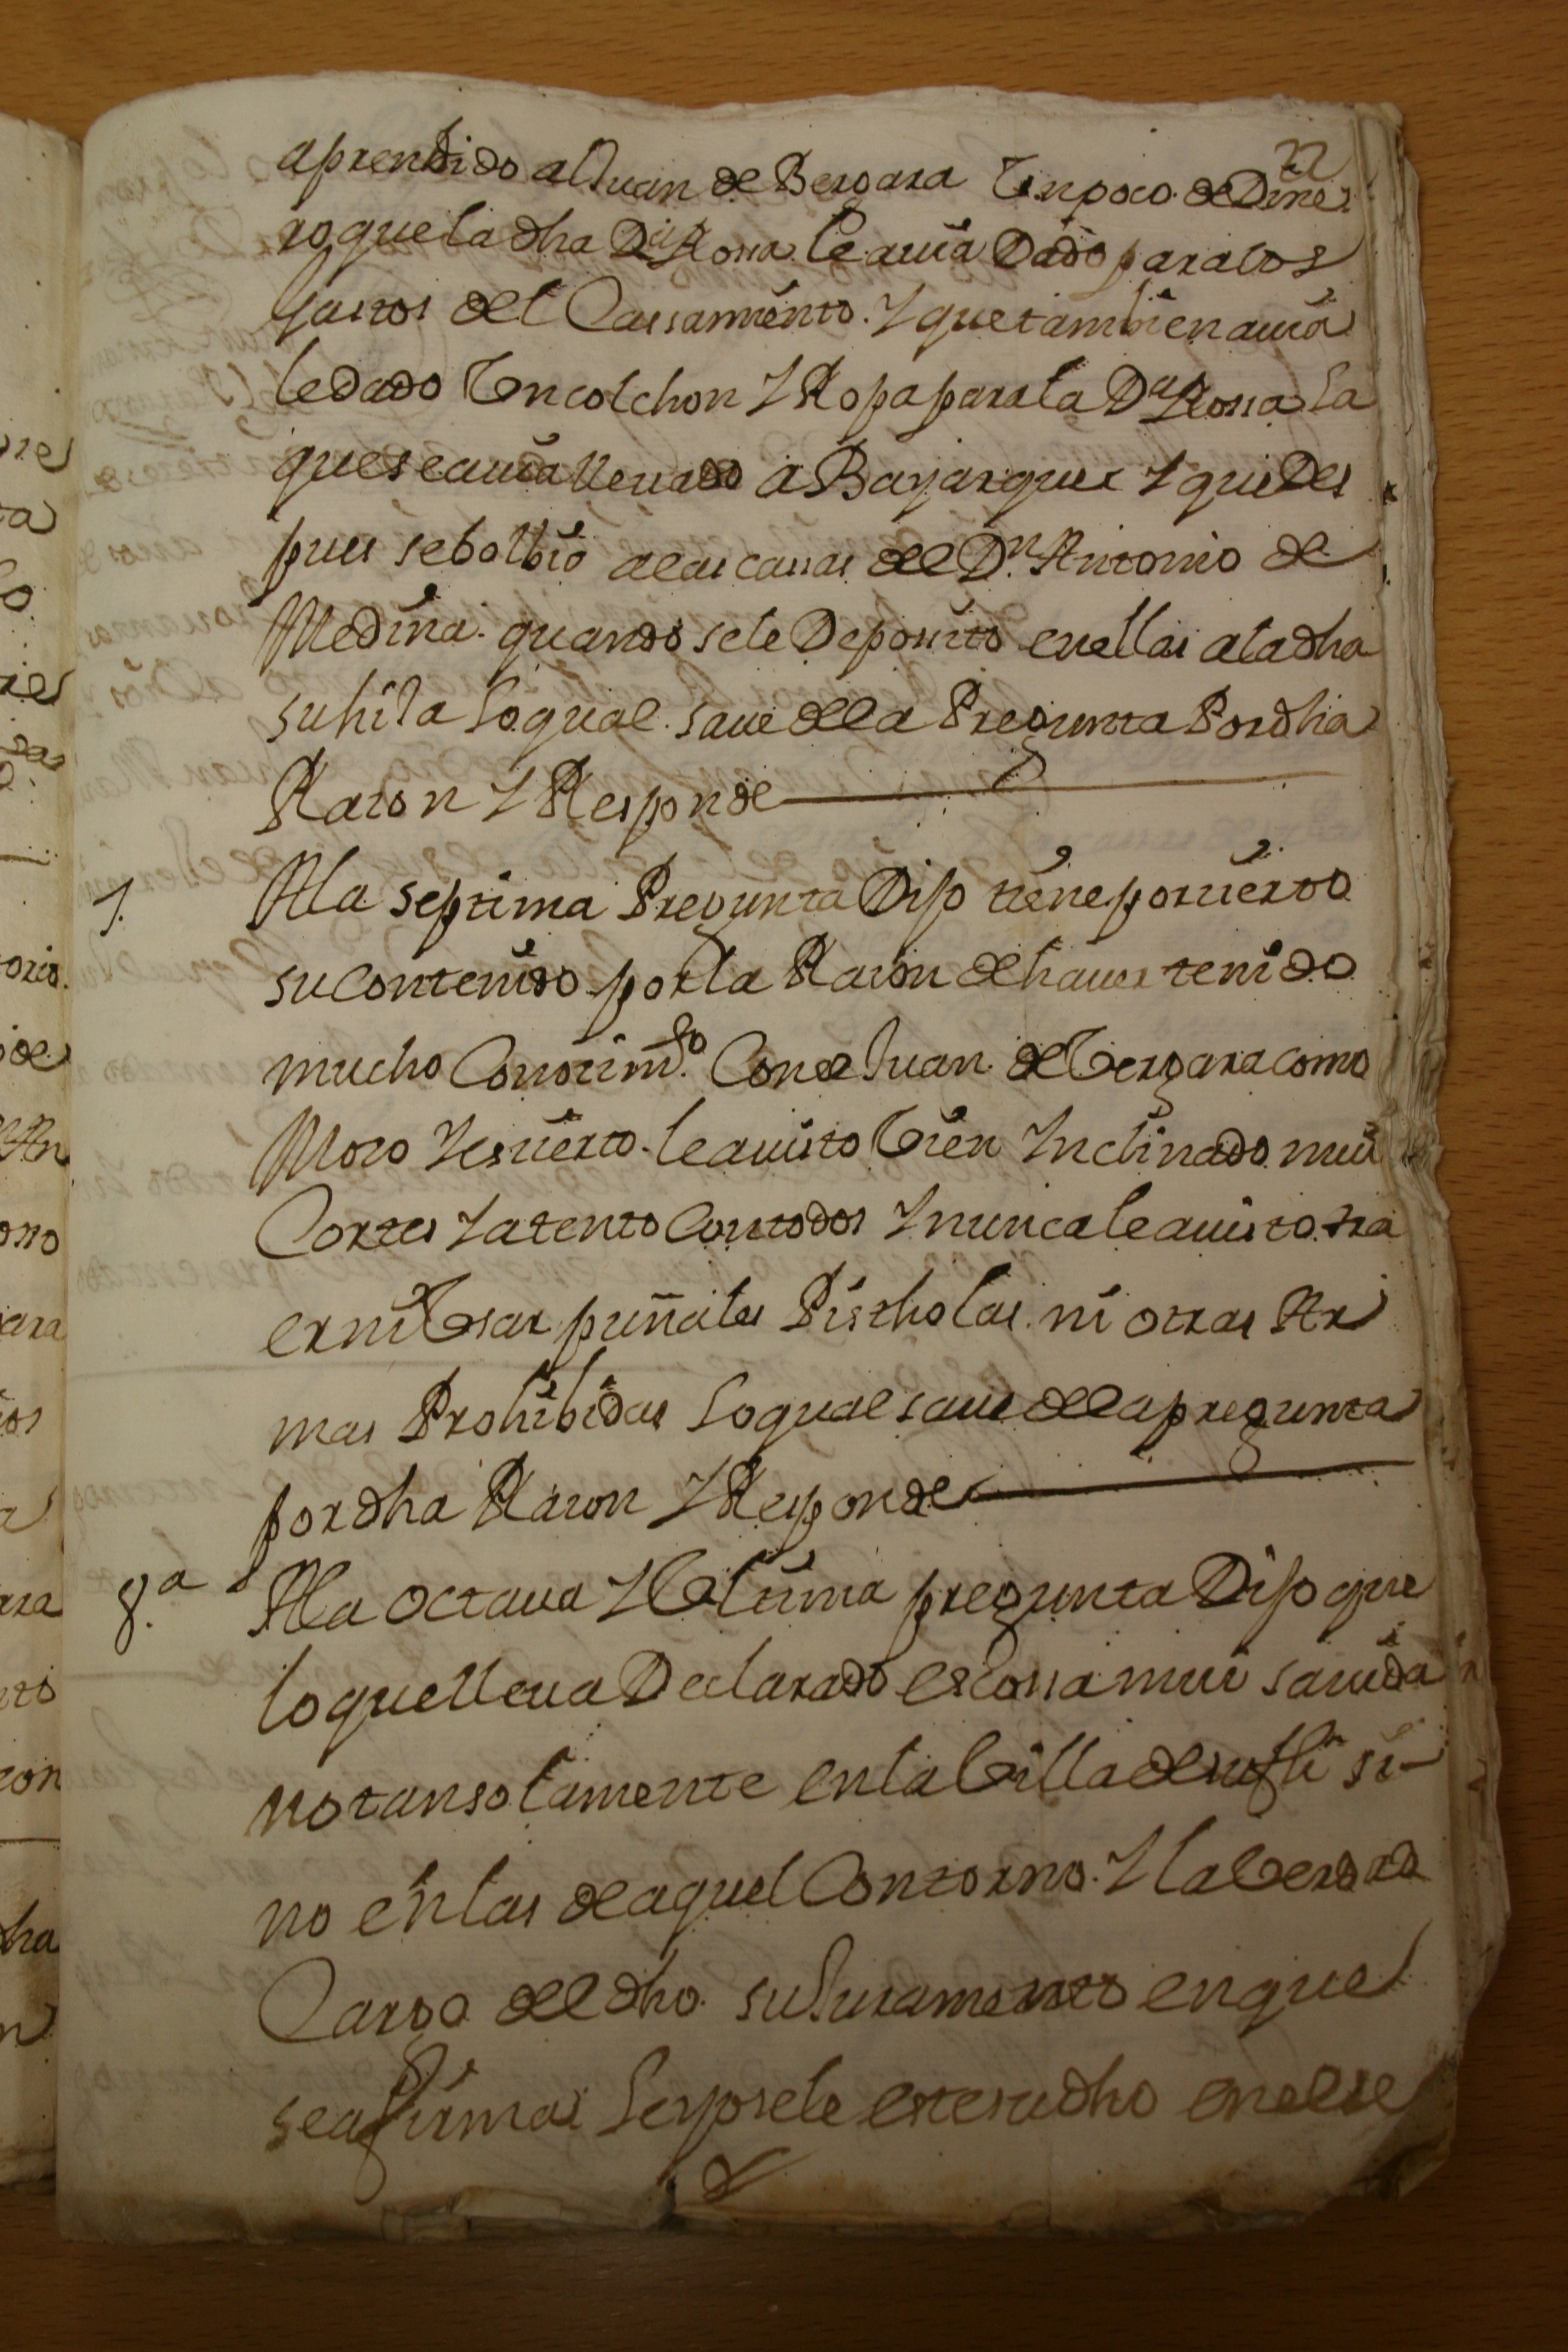 22
aprendido al Juan de Bergara Un poco de Dine
ro que la dha Dª Rossa le auia Dado para los
gastos del Cassamiento. Y que tambien auia
le dado Un colchon Y Ropa para la Dª Rossa la
que se auia lleuado a Bayarque Y que Des
pues se bolbio a las cassas del Dn Antonio de
Medina. quando se le Deposito en ellas a la dha
su hija lo qual saue de la Pregunta Por dha
Razon Y Responde
7. A la septima Pregunta Dijo tiene por cierto
su contenido por la Razon de hauer tenido
mucho Conozimto. Con el Juan de Vergara como
Mozo Y es cierto le a uisto Vien Inclinado mui
Cortes Y atento Con todos Y nunca le a uisto tra
er ni Usar puñales Pistholas ni otras Ar
mas Prohibidas lo qual saue de la pregunta
por dha Razon Y Responde
8.ª A la octaua Y Ultima pregunta Dijo que
lo que lleua Declarado es Cossa mui sauida
no tan solamente en la Villa de sufli si-
no en las de aquel Contorno. Y la Verdad
Cargo del dho su Juramento en que
se afirma i leyosele este su dho en el se